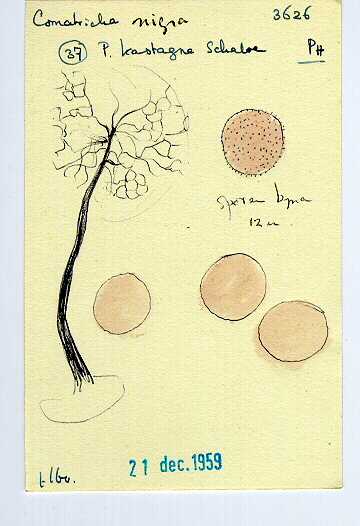 Comatricha nigra 3626
37 P. Kastagne Schalse PH
Sporen bijna
12 u
21 dec. 1959